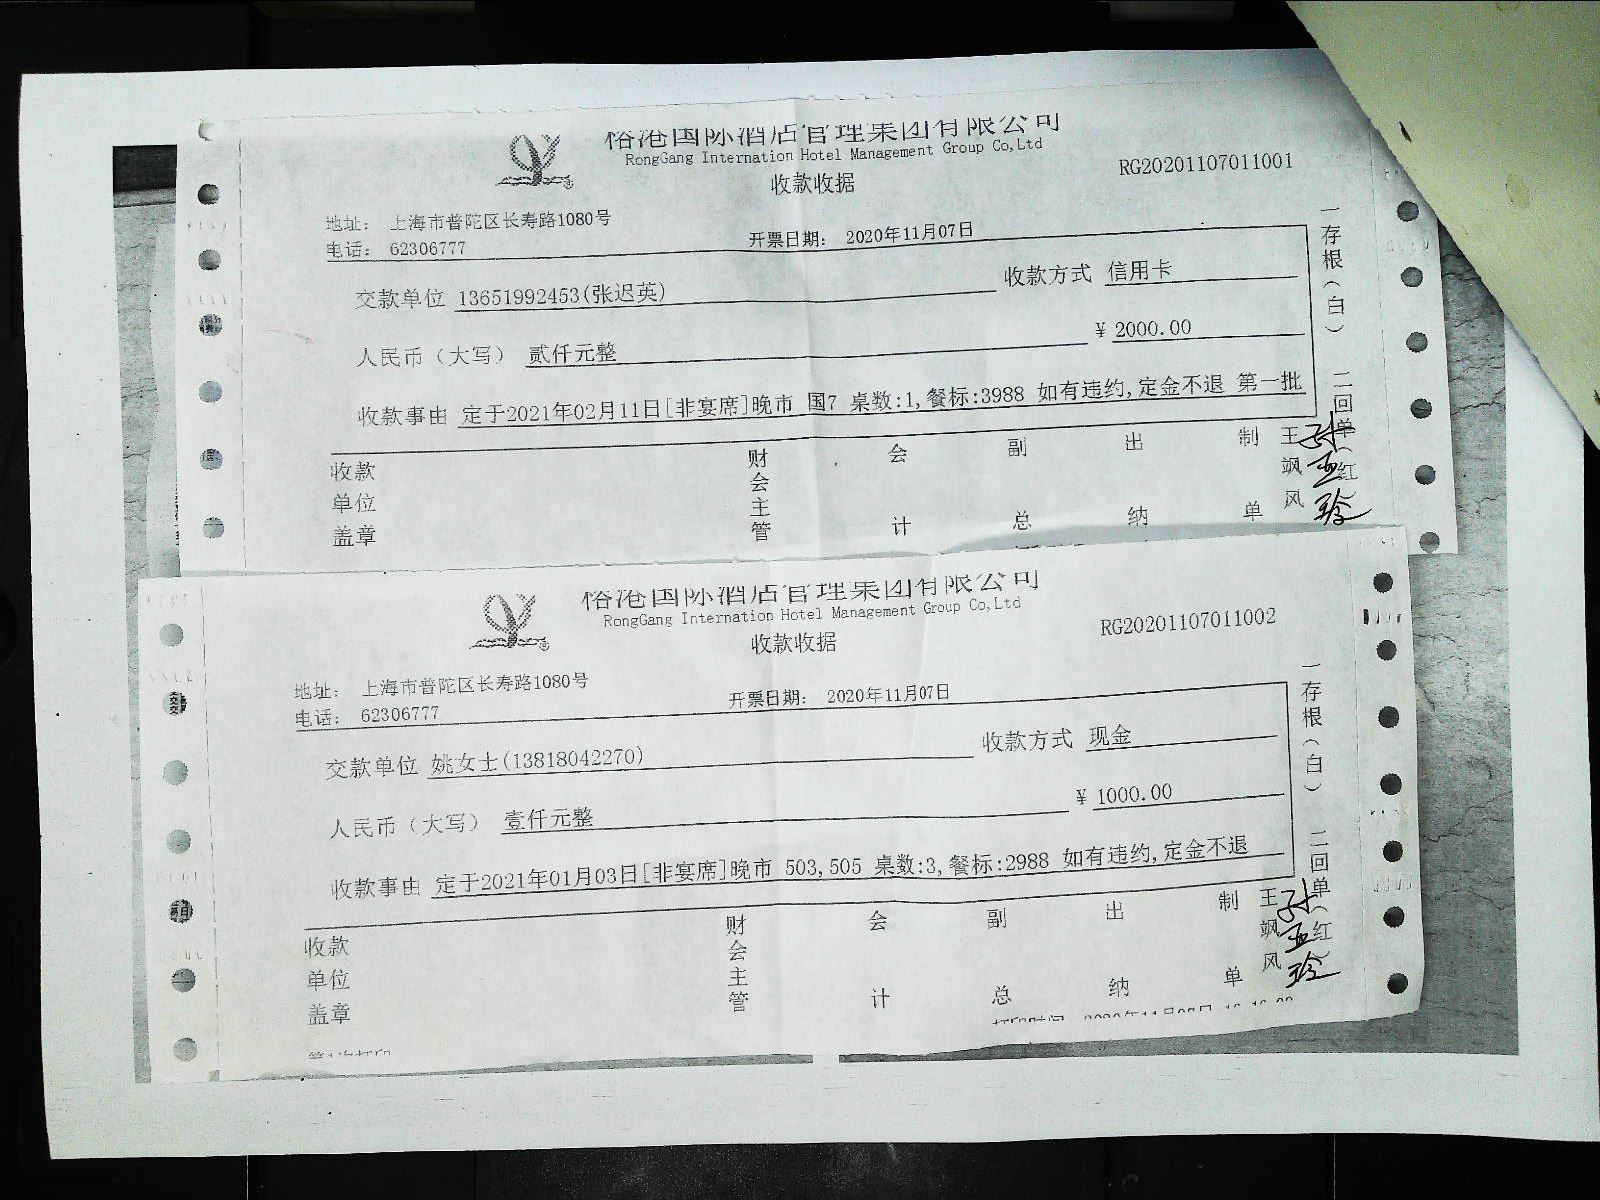 裕港国际酒店管理集团有限公司
RongGang Internation Hotel Management Group Co,Ltd
收款收据
RG20201107011001
地址： 上海市普陀区长寿路1080号
电话： 62306777
开票日期： 2020年11月07日
交款单位 13651992453(张迟英)
收款方式 信用卡
人民币（大写） 贰仟元整
¥ 2000.00
收款事由 定于2021年02月11日[非宴席]晚市 国7 桌数:1,餐标:3988 如有违约,定金不退 第一批
一存根（白） 二回单（红
收款单位盖章
财会主管
会计
副总
出纳
制单
王飒风
孙亚珍
裕港国际酒店管理集团有限公司
RongGang Internation Hotel Management Group Co,Ltd
收款收据
RG20201107011002
地址： 上海市普陀区长寿路1080号
电话： 62306777
开票日期： 2020年11月07日
交款单位 姚女士(13818042270)
收款方式 现金
人民币（大写） 壹仟元整
¥ 1000.00
收款事由 定于2021年01月03日[非宴席]晚市 503,505 桌数:3,餐标:2988 如有违约,定金不退
一存根（白） 二回单（红）
收款单位盖章
财会主管
会计
副总
出纳
制单
王飒风
孙亚珍